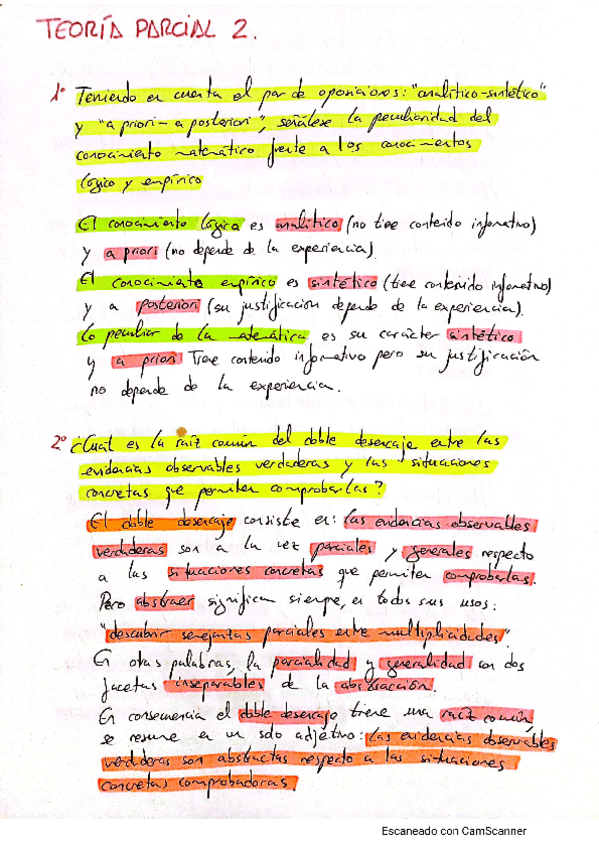 TEORÍA PARCIAL 2.
1º Teniendo en cuenta el par de oposiciones: "analítico-sintético"
y "a priori - a posteriori", señálese la peculiaridad del
conocimiento matemático frente a los conocimientos
lógico y empírico
El conocimiento lógico es analítico (no tiene contenido informativo)
y a priori (no depende de la experiencia).
El conocimiento empírico es sintético (tiene contenido informativo)
y a posteriori (su justificación depende de la experiencia).
Lo peculiar de la matemática es su carácter sintético
y a priori Tiene contenido informativo pero su justificación
no depende de la experiencia.
2º ¿Cuál es la raíz común del doble desencaje entre las
evidencias observables verdaderas y las situaciones
concretas que permiten comprobarlas?
El doble desencaje consiste en: las evidencias observables
verdaderas son a la vez parciales y generales respecto
a las situaciones concretas que permiten comprobarlas.
Pero abstraer significa siempre, en todos sus usos:
"descubrir semejanzas parciales entre multiplicidades"
En otras palabras, la parcialidad y generalidad son dos
facetas inseparables de la abstracción.
En consecuencia el doble desencaje tiene una raíz común,
se resume en un solo adjetivo: las evidencias observables
verdaderas son abstractas respecto a las situaciones
concretas comprobadoras.
Escaneado con CamScanner